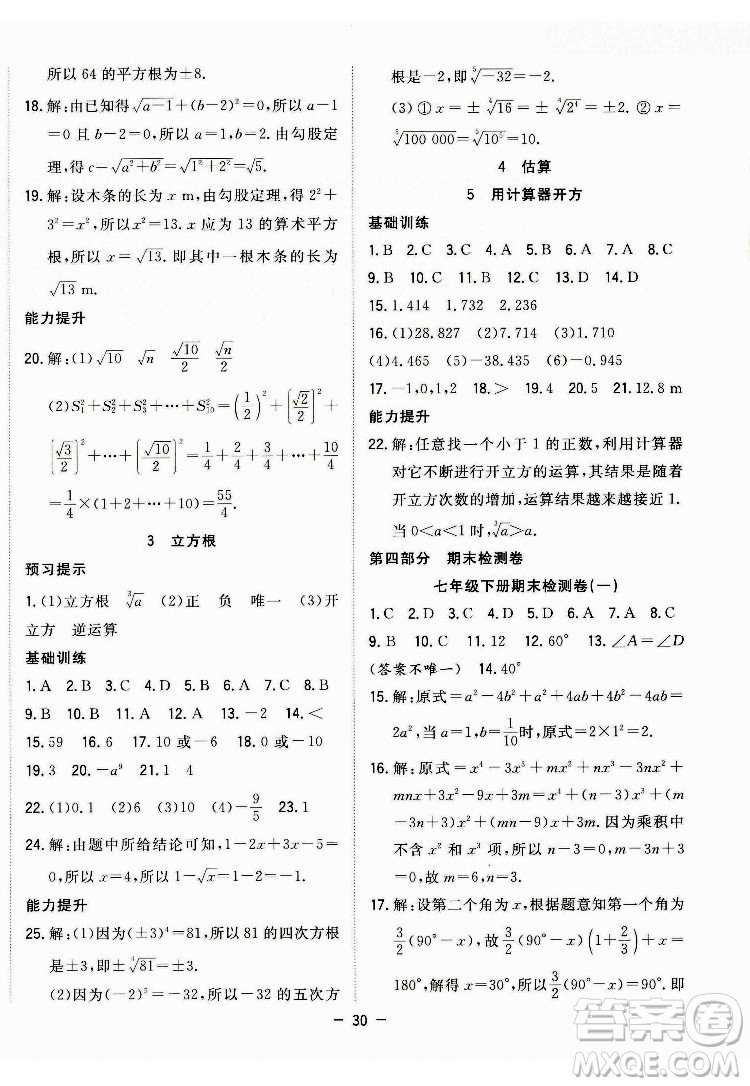 所以 64 的平方根为±8.
18. 解:由已知得√(a-1)+(b-2)²=0,所以 a-1
=0 且 b-2=0,所以 a=1,b=2. 由勾股定
理,得 c-√(a²+b²)=√(1²+2²)=√5.
19. 解:设木条的长为 x m,由勾股定理得 2²+
3²=x²,所以 x²=13. x 应为 13 的算术平方
根,所以 x=√13,即这一根木条的长为
√13 m.
能力提升
20. 解:(1)√10 √n √10/2 √n/2
(2)S₁²+S₂²+S₃²+…+S₁₀²=(1/2)²+[√2/2]²+
[√3/2]²+…+[√10/2]²=1/4+2/4+3/4+…+10/4
=1/4×(1+2+…+10)=55/4.
3 立方根
预习提示
1.(1)立方根 ∛a (2)正 负 唯一 (3)开
立方 逆运算
基础训练
1. A 2. B 3. C 4. D 5. B 6. B 7. C 8. D
9. B 10. B 11. A 12. D 13. B 14. <
15. 59 16. 6 17. 10或-4 18. 1或-5
19. 3 20. -a⁹ 21. 1 4
22. (1)0.1 (2)6 (3)2 (4)-9/5 23. 1
24. 解:由题中所给结论可知,1-2x+3x-5=
0,所以 x=4,所以 1-√x=1-2=-1.
能力提升
25. 解:(1)因为(±3)⁴=81,所以 81 的四次方根
是±3,即±∜81=±3.
(2)因为(-2)⁵=-32,所以-32 的五次方
根是-2,即⁵√-32=-2.
(3)①x=±∜16=±∜2⁴=±2. ②x=
⁵√100 000=10.
4 估算
5 用计算器开方
基础训练
1. B 2. C 3. C 4. B 5. C 6. D 7. A 8. C
9. B 10. C 11. C 12. A 13. A 14. C
15. 1.414 1.732 2.236
16. (1)28.827 (2)7.914 (3)0.762
(4)4.465 (5)13.038 (6)-0.945
17. -1,0,1,2 18. > 19. 4 20. 5 21. 12.8 m
能力提升
22. 解:任意找一个小于 1 的正数,利用计算器
对它不断进行开立方的运算,其结果是随着
开立方次数的增加,运算结果越来越接近 1.
当 0<a<1 时,∛a>a.
第四部分 期末检测卷
七年级下册期末检测卷(一)
1. C 2. D 3. C 4. B 5. D 6. A 7. C 8. D
9. B 10. C 11. 12 12. 60° 13. ∠A=∠D
(答案不唯一) 14. 40°
15. 解:原式=a²-4b²+a²+4ab+4b²-4ab=
2a²,当 a=1/10时,原式=2×1²=2.
16. 解:原式=x⁴-3x³+nx²+mx³-3mx²+
mnx+3x²-9x+3n=x⁴+(m-3)x³+(n-
3m+3)x²+(mn-9)x+3n. 因为乘积中
不含 x² 和 x³ 项,所以 m-3=0,n-3m+3
=0,故 m=3,n=6.
17. 解:设第二个角为 x,根据题意知第一个角为
3/2(90°-x),故 3/2(90°-x)(1+1/3)+x=
180°,解得 x=30°,所以3/2(90°-x)=90°. 即
— 30 —
答案圈
MXQE.COM